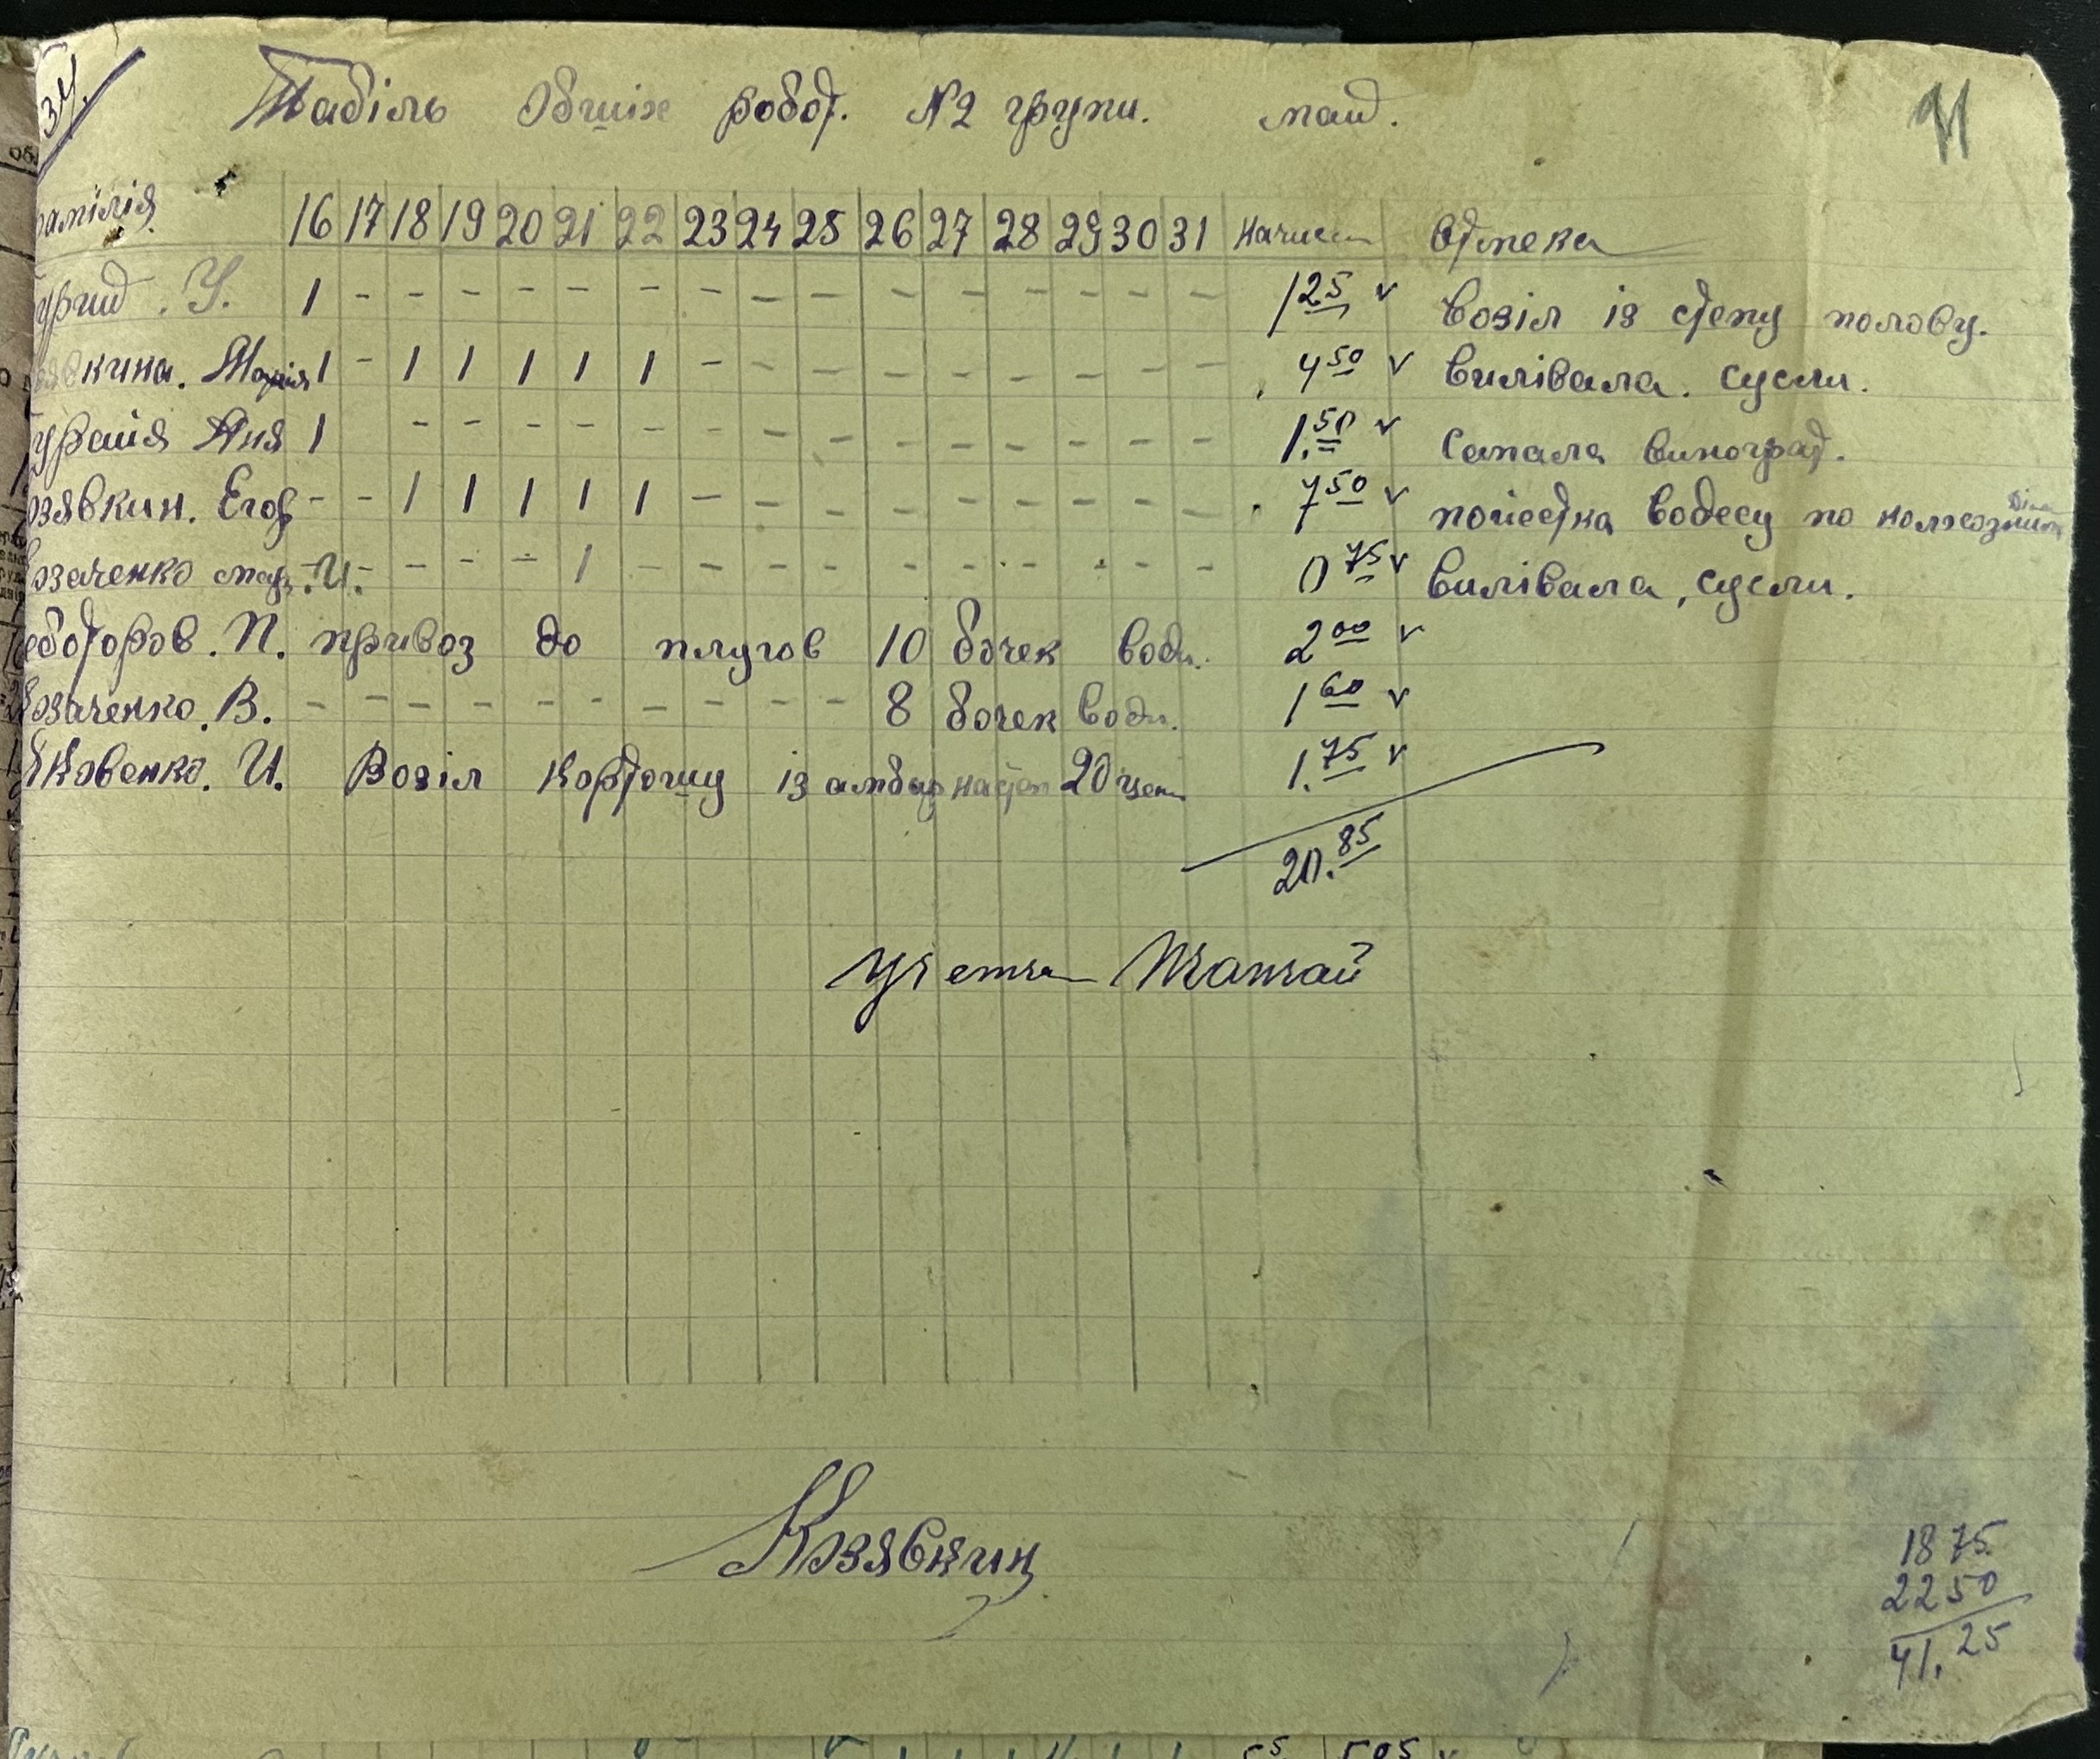 34.
Табіль общіх робот. №2 групи. май.
91
фамілія 16 17 18 19 20 21 22 23 24 25 26 27 28 29 30 31 Начисл Отмека
У. 1 - - - - - - - - - - - - - - - 1 25 v Возіл із степу полову.
зявкина. Марія 1 - 1 1 1 1 1 - - - - - - - - - 4 50 v Вилівала. сусли.
Аня 1 - - - - - - - - - - - - - - 1. 50 v Сапала виноград.
озявкин. Егор - - 1 1 1 1 1 - - - - - - - - - 7 50 v поієстка вОдесу по колхозним Діла
озаченко мар. И. - - - - 1 - - - - - - - - - - 0 75 v Вилівала, сусли.
еботоров. П. привоз до плугов 10 бочек води. 2 00 v
Козаченко. В. - - - - - - - - - - 8 бочек води. 1 60 v
Яковенко. И. Возіл картошу із амбар 20 цен 1. 75 v
20. 85
Учетчи
Козявкин
18 75
22 50
41. 25